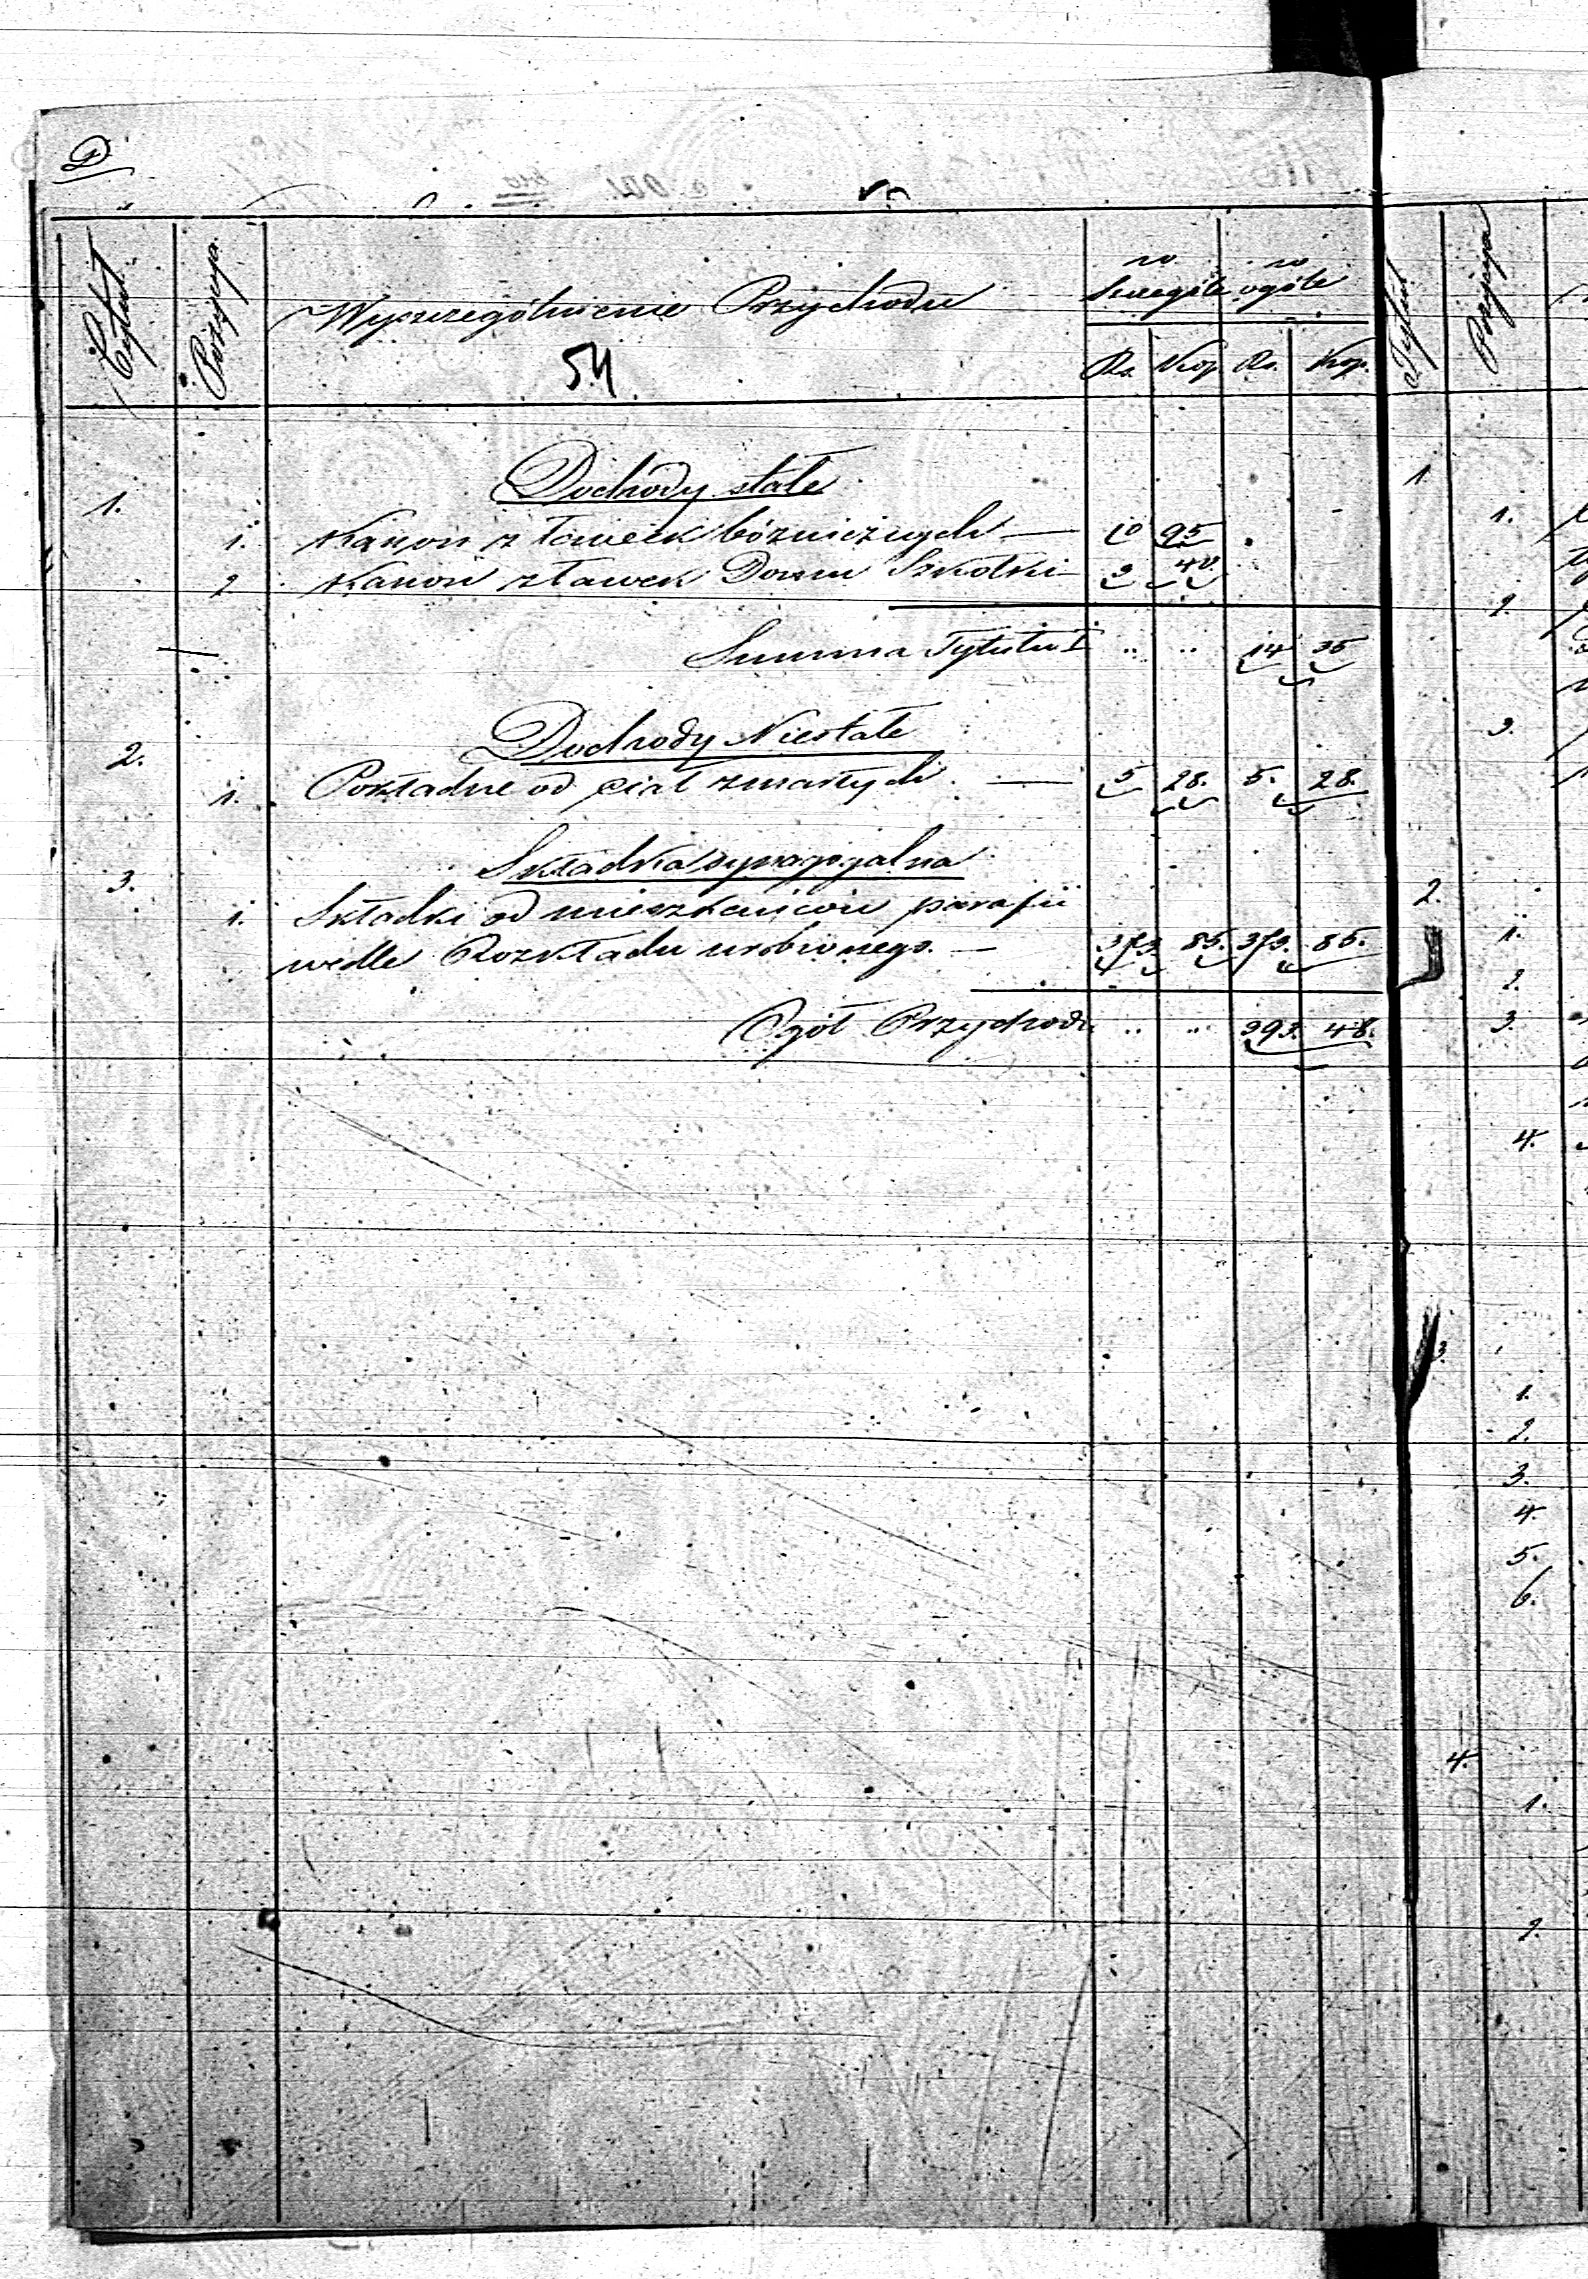 D
Tytuł Pozycya Wyszczególnienie Przychodu w szczególe w ogóle
54 Rs. Kop. Rs. Kop.
Dochody stałe
1.
1. Kanon z ławek bóżniczych — 10 95
2 Kanon z ławek Domu Szkółki — 3 40
Summa Tytułu I " " 14 35
Dochody Niestałe
2.
1. Pokładne od ciał zmarłych — 5 28. 5. 28.
Składka synagogalna
3.
1. Składki od mieszkańców parafii
wedle Rozkładu urobionego. — 373 85. 373. 85.
Ogół Przychodu " " 393. 48.
Tytuł Pozycya
1.
1.
2.
3.
2.
1.
2.
3.
4.
3.
1.
2.
3.
4.
5.
6.
4.
1.
2.